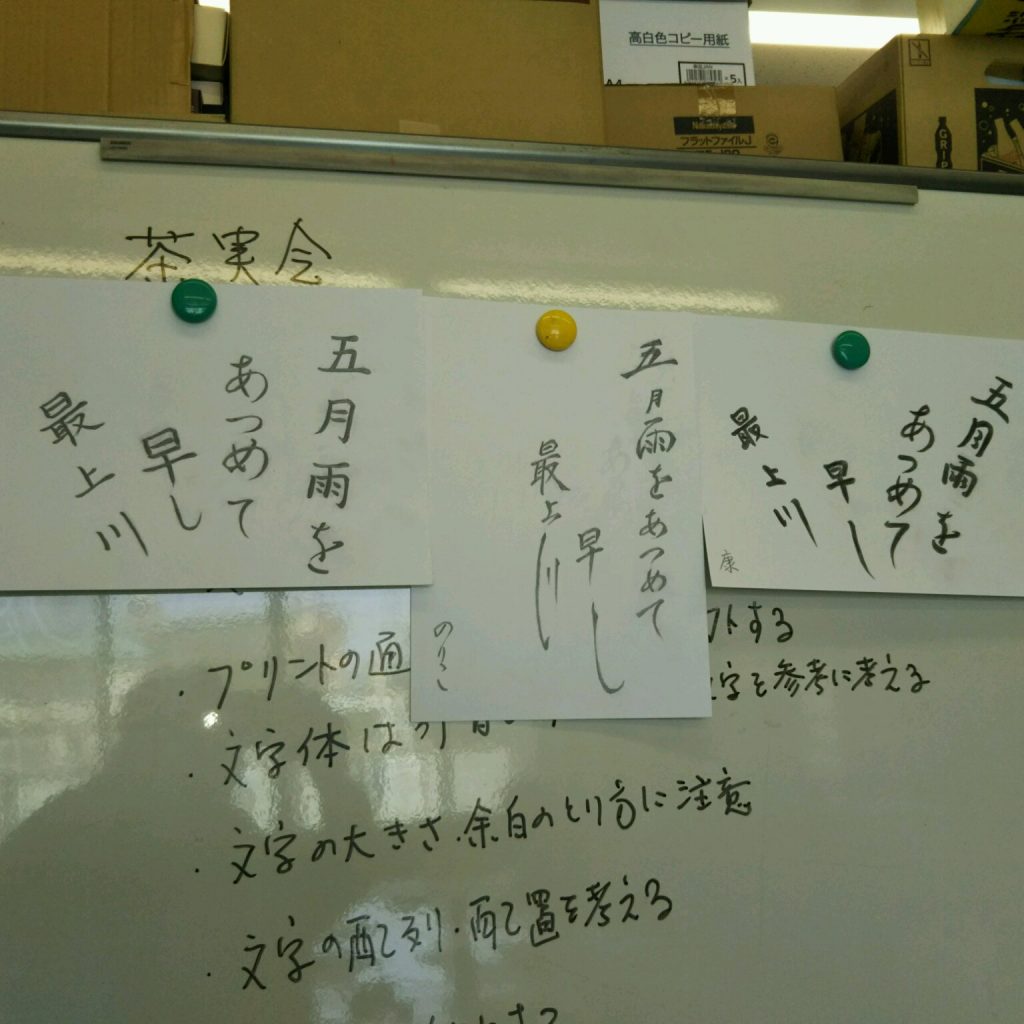 高白色コピー用紙
フラットファイルJ
GRIP
茶実会
五月雨を
あつめて
早し
最上川
五月雨をあつめて
早し
最上川
のりこ
五月雨を
あつめて
早し
最上川
康
フトする
・プリントの通
字を参考に考える
・文字体は
・文字の大きさ、余白のとり方に注意
・文字の配列・配置を考える